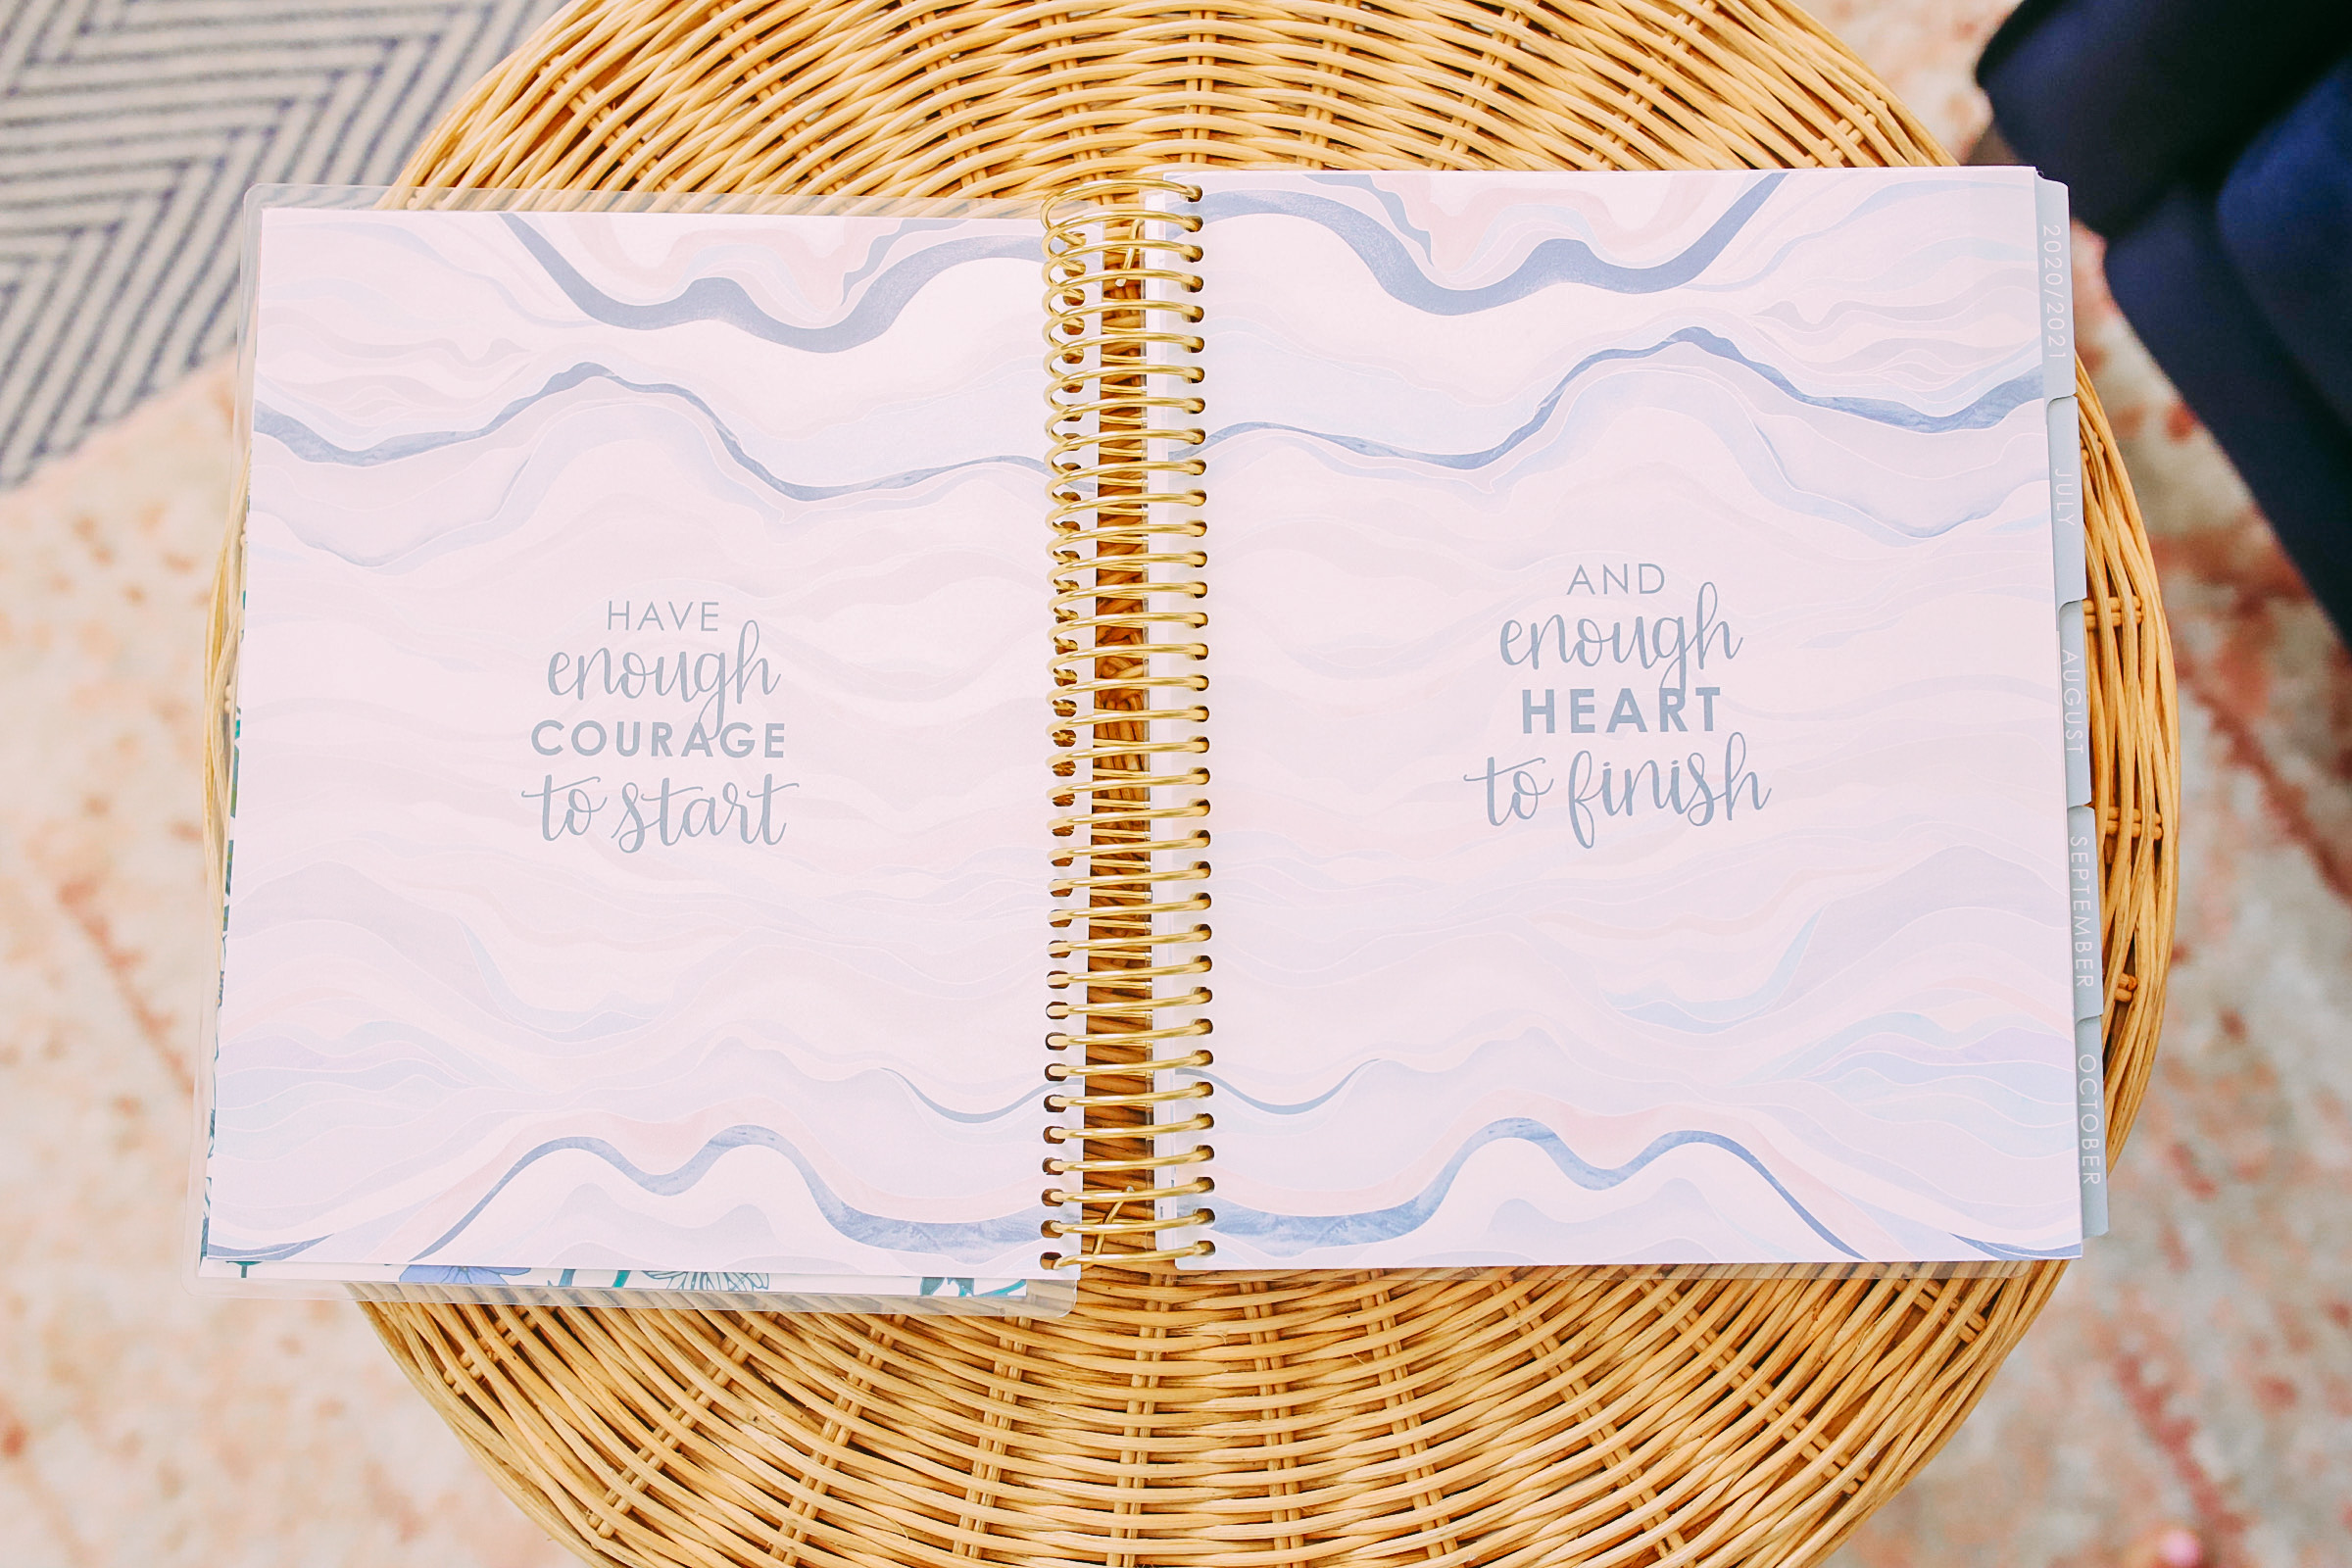 HAVE
enough
COURAGE
to start
AND
enough
HEART
to finish
2020/2021
JULY
AUGUST
SEPTEMBER
OCTOBER